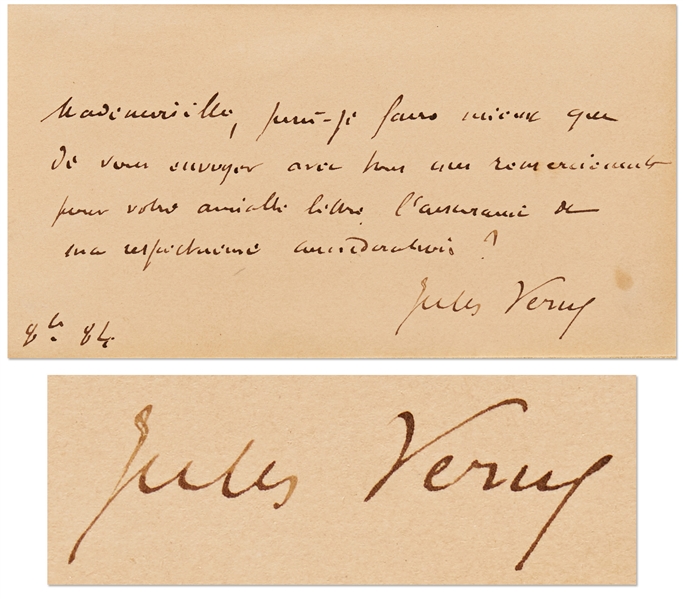 Mademoiselle, puis-je faire mieux que
de vous envoyer avec tous mes remerciements
pour votre aimable lettre l'assurance de
ma respectueuse considération ?
Jules Verne
8bre 84
Jules Verne